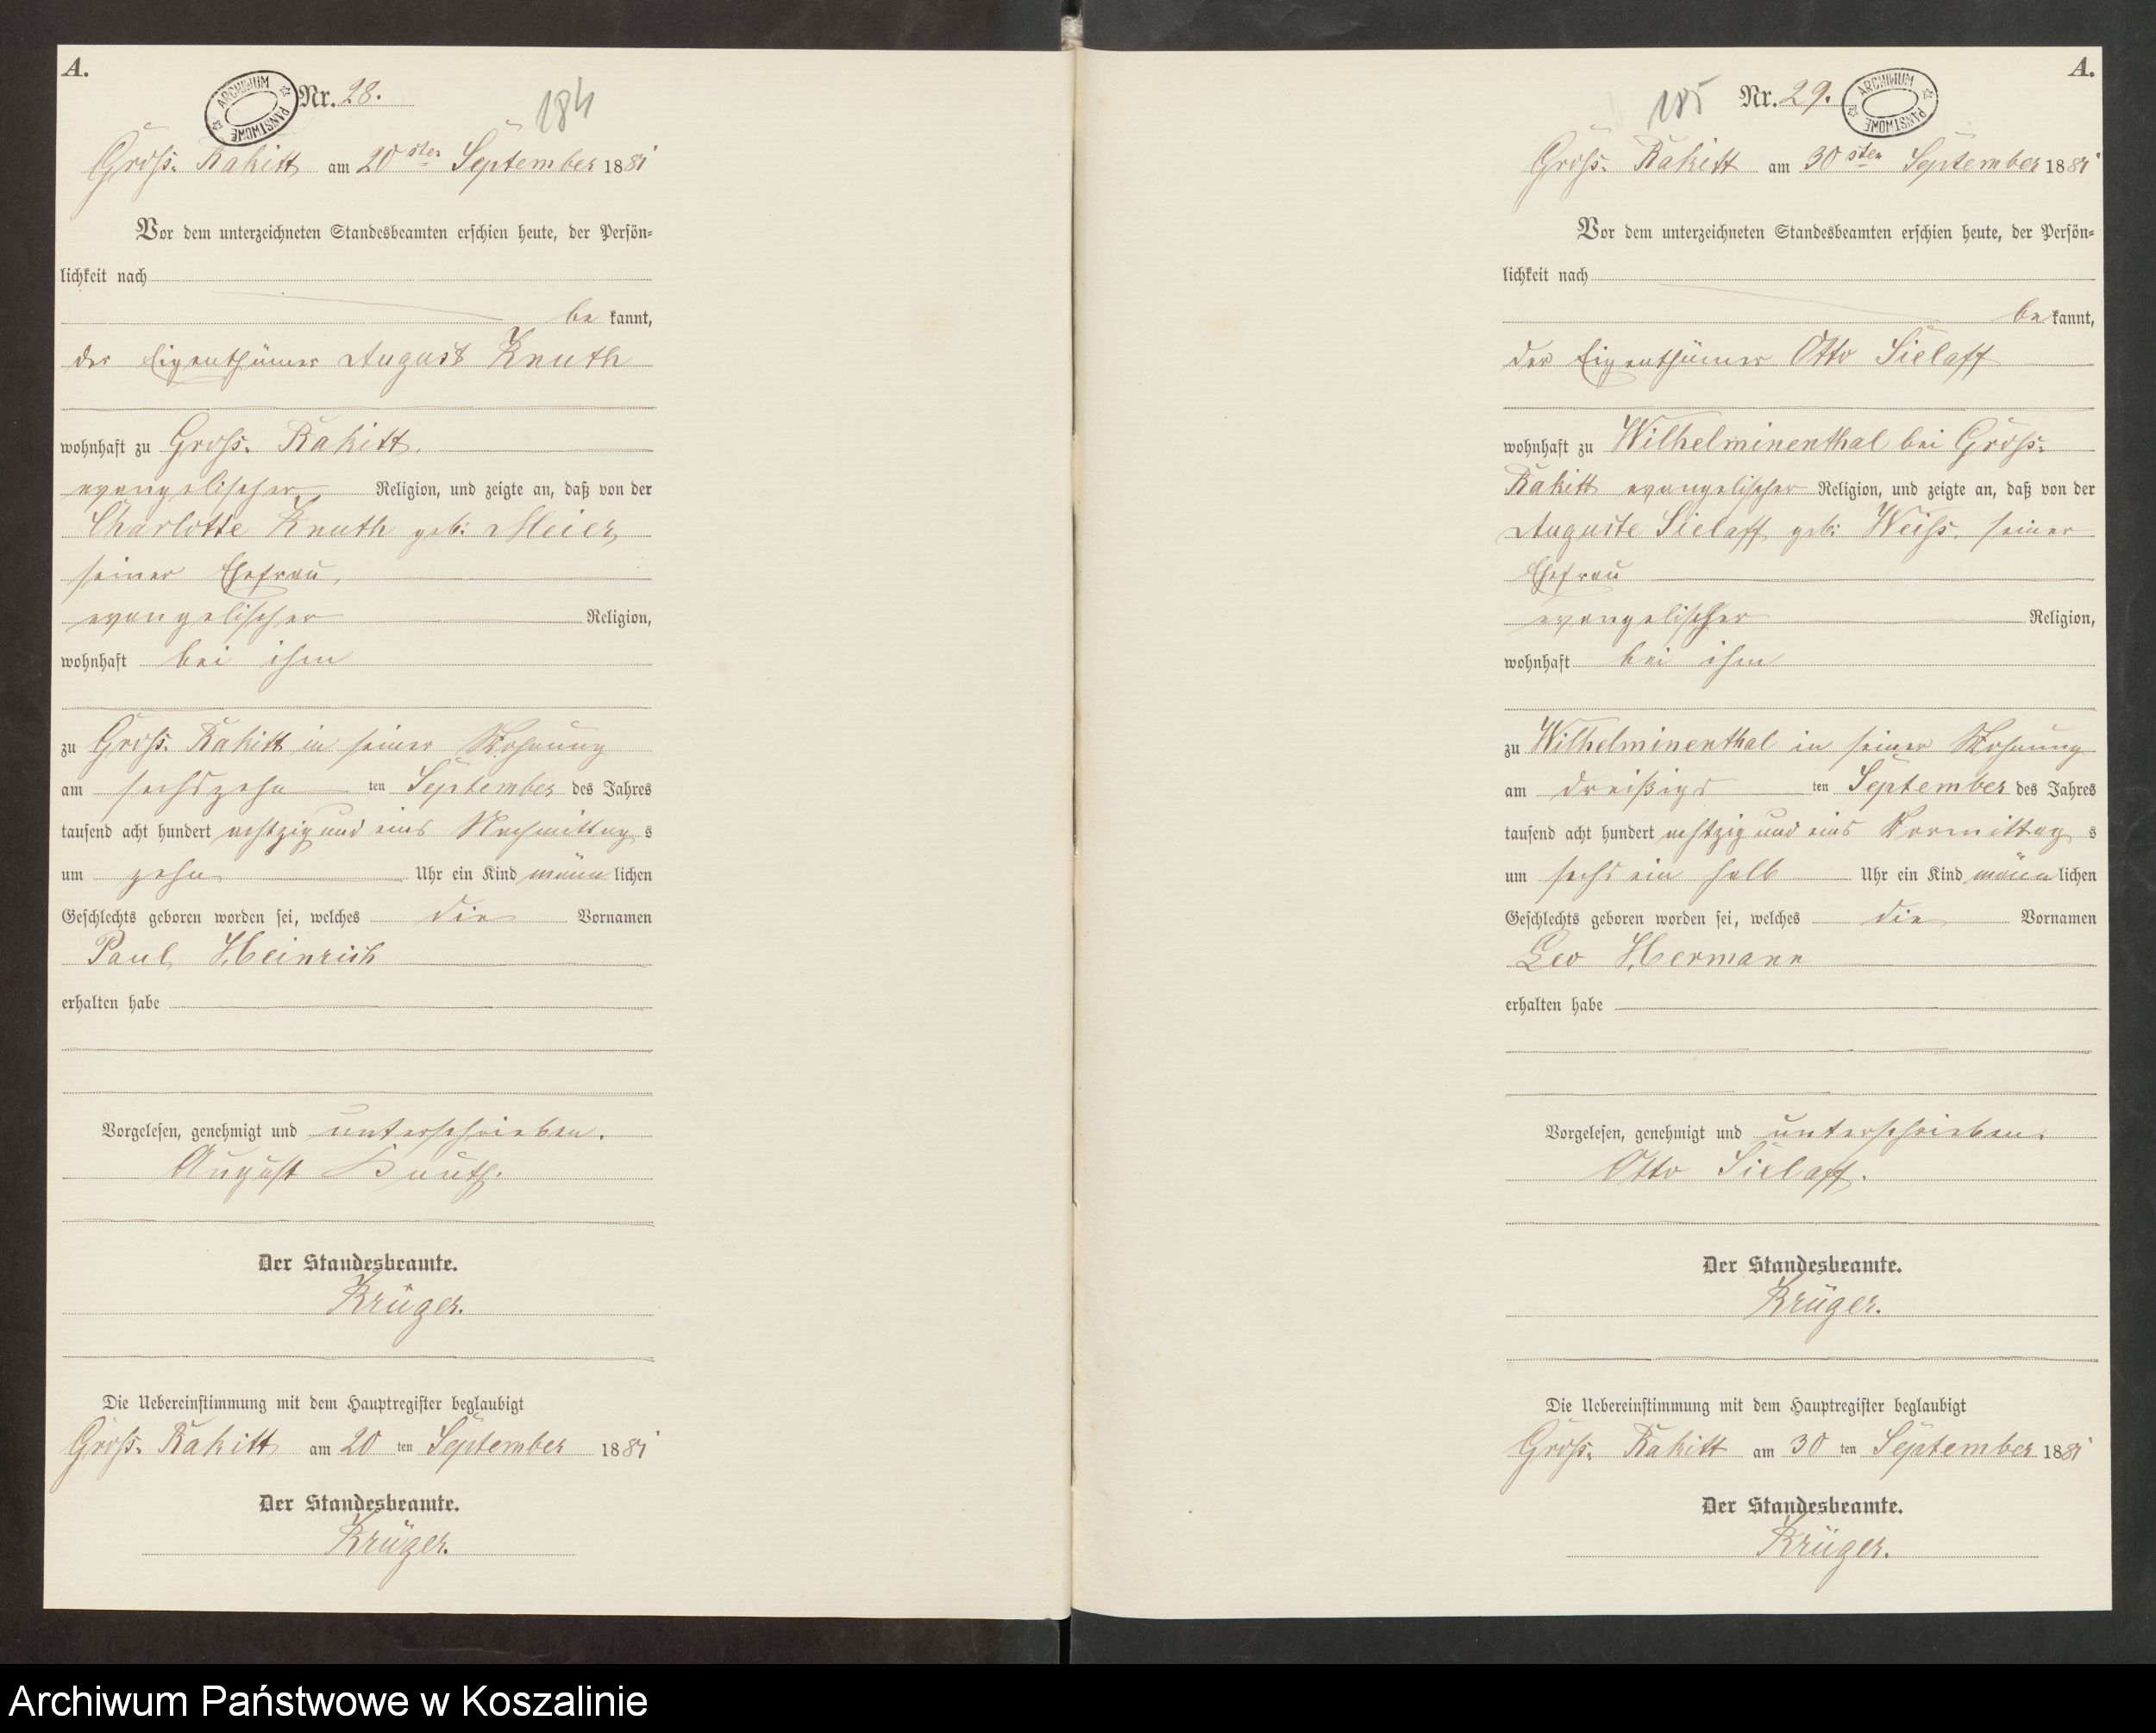 A.
ARCHIWUM PAŃSTWOWE
Nr. 28.
184
Groß-Rakitt am 20sten September 1881
Vor dem unterzeichneten Standesbeamten erschien heute, der Persön-
lichkeit nach
be kannt,
der Eigenthümer August Knuth
wohnhaft zu Groß-Rakitt,
evangelischer Religion, und zeigte an, daß von der
Charlotte Knuth geb: Meier,
seiner Ehefrau,
evangelischer Religion,
wohnhaft bei ihm
zu Groß-Rakitt in seiner Wohnung
am sechszehn ten September des Jahres
tausend acht hundert achtzig und eins Nachmittag s
um zehn Uhr ein Kind männ lichen
Geschlechts geboren worden sei, welches die Vornamen
Paul Heinrich
erhalten habe
Vorgelesen, genehmigt und unterschrieben.
August Knuth.
Der Standesbeamte.
Krüger.
Die Uebereinstimmung mit dem Hauptregister beglaubigt
Groß-Rakitt am 20 ten September 1881
Der Standesbeamte.
Krüger.
A.
185
Nr. 29.
ARCHIWUM PAŃSTWOWE
Groß-Rakitt am 30sten September 1881
Vor dem unterzeichneten Standesbeamten erschien heute, der Persön-
lichkeit nach
be kannt,
der Eigenthümer Otto Sielaff
wohnhaft zu Wilhelminenthal bei Groß-
Rakitt evangelischer Religion, und zeigte an, daß von der
Auguste Sielaff geb: Weiß, seiner
Ehefrau
evangelischer Religion,
wohnhaft bei ihm
zu Wilhelminenthal in seiner Wohnung
am dreißigs ten September des Jahres
tausend acht hundert achtzig und eins Vormittag s
um sechs ein halb Uhr ein Kind männ lichen
Geschlechts geboren worden sei, welches die Vornamen
Leo Hermann
erhalten habe
Vorgelesen, genehmigt und unterschrieben.
Otto Sielaff.
Der Standesbeamte.
Krüger.
Die Uebereinstimmung mit dem Hauptregister beglaubigt
Groß-Rakitt am 30 ten September 1881
Der Standesbeamte.
Krüger.
Archiwum Państwowe w Koszalinie